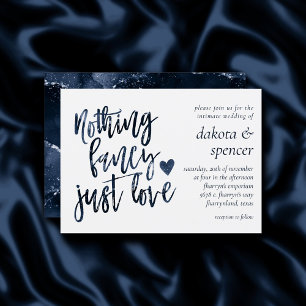 Nothing
fancy
just love
please join us for the
intimate wedding of
dakota &
spencer
saturday, 20th of november
at four in the afternoon
fharryn's emporium
9678 e. fharryn's way
fharrynland, texas
reception to follow